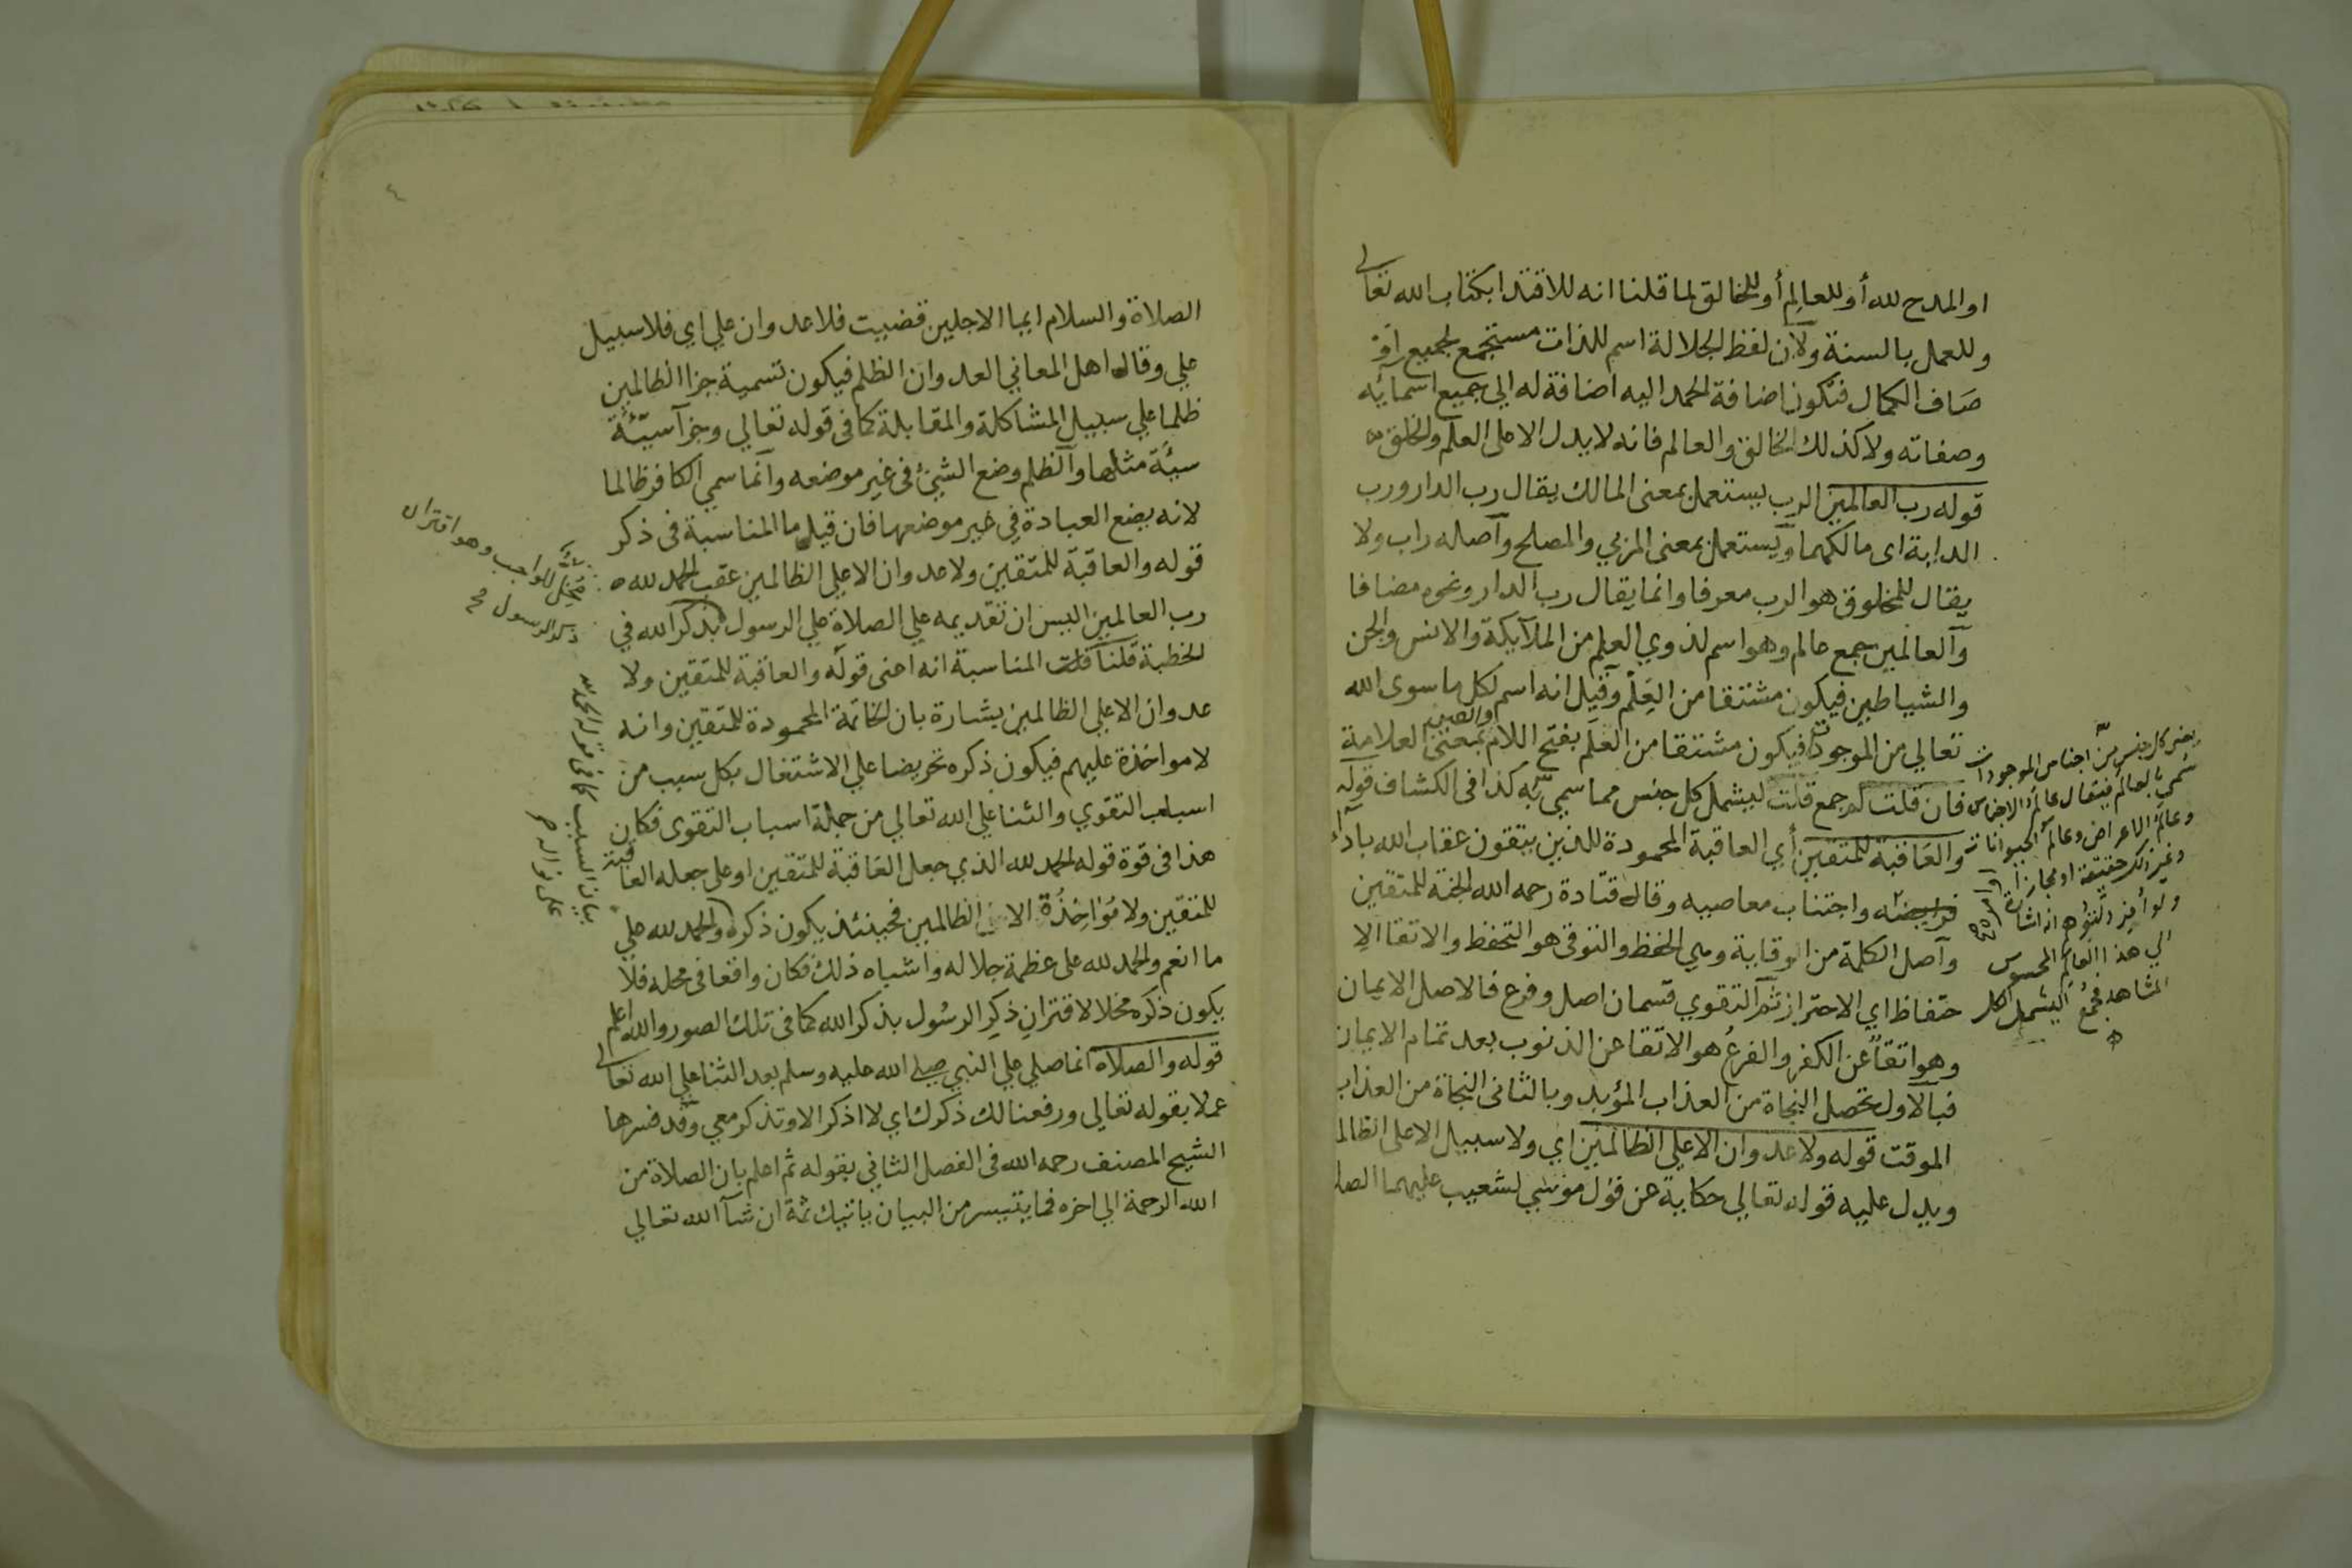 او المدح لله أو للعالِم أو للخالق لما قلنا انه للاقتدا بكتاب الله تعالى
وللعمل بالسنة ولآن لفظ الجلالة اسم للذات مستجمع لجميع او
صَاف الكمال فتكون اضافة الحمد اليه اضافة له الي جميع اسمائه
وصفاته ولا كذلك الخالق والعالم فانه لا يدل الا على العلم والخلق
قوله رب العالمين الرب يستعمل بمعنى المالك يقال رب الدار ورب
الدابة اى مالكهما ويستعمل بمعنى المربي والمصلح وآصله راب ولا
يقال للمخلوق هو الرب معرفا وانما يقال رب الدار ونحوه مضافا
وآلعالمين جمع عالم وهو اسم لذوي العلم من الملآيكة والانس والجن
والشياطين فيكون مشتقا من العِلْم وقيل انه اسم لكل ما سوى الله
تعالي من الموجودات فيكون مشتقا من العلَم بفتح اللام بمعنى العلامة
فان قلت لم جمع قلت ليشمل كل جنس مما سمي به كذا فى الكشاف قوله
والعَاقبة للمتقين أي العاقبة المحمودة للذين يتقون عقاب الله بادآء
فرايضه واجتناب معاصيه وقال قتادة رحمه الله الجنة للمتقين
وآصل الكلمة من الوقاية وهي الحفظ والتوقى هو التحفظ والاتقا الا
حتفاظ اي الاحتراز ثم التقوي قسمان اصل وفرع فالاصل الايمان
وهو اتقآ عن الكفر والفرعُ هو الاتقا عن الذنوب بعد تمام الايمان
فبالآول تحصل النجاة من العذاب المؤبد وبالثانى النجاة من العذاب
الموقت قوله ولا عدوان الا علي الظالمين اي ولا سبيل الا على الظالم
ويدل عليه قوله تعالي حكاية عن قول موسي لشعيب عليهما الصلـ
يعنى كل جنس من اجناس الموجودات
سُمي بالعالَم فيقال عالم الاجسام
وعالم الاعراض وعالم الحيوانات
وغير ذلك حقيقة او مجازا
ولو أفرد لتوهم انه اشارة
الي هذا العالم المحسوس
المشاهد فجمع ليشمل الكل
الصلاة والسلام ايما الاجلين قضيت فلا عدوان علي اي فلا سبيل
علي وقال اهل المعاني العدوان الظلم فيكون تسمية جزا الظالمين
ظلما علي سبيل المشاكلة والمقابلة كما فى قوله تعالي وجزآ سيّئة
سيئة مثلها وآلظلم وضع الشئ فى غير موضعه وآنما سمي الكافر ظالما
لانه يضع العبادة في غير موضعها فان قيل ما المناسبة فى ذكر
قوله والعاقبة للمتقين ولا عدوان الا علي الظالمين عقب الحمد لله
رب العالمين اليس ان تقديمه علي الصلاة علي الرسول بذكر الله في
الخطبة قلنا قلت المناسبة انه اعنى قوله والعاقبة للمتقين ولا
عدوان الا علي الظالمين يشارة بان الخاتمة المحمودة للمتقين وانه
لا مواخذة عليهم فيكون ذكره تحريضا علي الاشتغال بكل سبب من
اسباب التقوي والثنا علي الله تعالي من جملة اسباب التقوى فكان
هذا فى قوة قوله الحمد لله الذي جعل العَاقبة للمتقين او على جعله العاقبة
للمتقين ولا مُؤاخِذُة الا الظالمين فحينئذ يكون ذكره والحمد لله علي
ما انعم والحمد لله على عظمة جلاله واشباه ذلك فكان واقعا فى محله فلا
يكون ذكره مخلا لاقترانِ ذكِر الرسُول بذكر الله كما فى تلك الصور والله اعلم
قوله والصلاة انما صلي علي النبي صلى الله عليه وسلم بعد الثنا علي الله تعالى
عملا بقوله تعالي ورفعنا لك ذكرك اي لا اذكر الا وتذكر معي وقد فسرها
الشيخ المصنف رحمه الله فى الفصل الثاني بقوله ثم اعلم بان الصلاة من
الله الرحمة الي اخره فما يتيسر من البيان ياتيك ثمة ان شآ الله تعالي
مخل للواجب وهو اقتران
ذكر الرسول صح
بيان السبب كما فى قوله الحمد لله
على نواله
٤